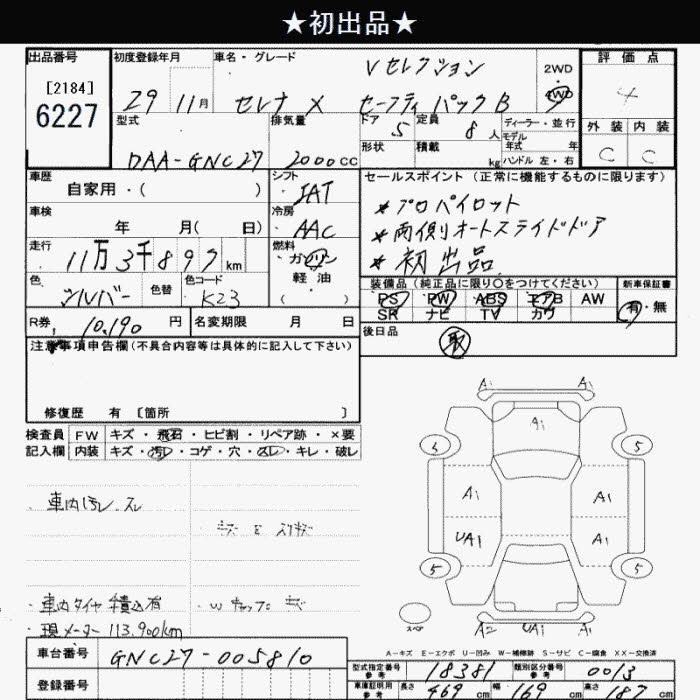 ★初出品★
出品番号
[2184]
6227
初度登録年月
29 11月
車名・グレード
Vセレクション
セレナ X セーフティ パック B
2WD
・
4WD
評価点
4
外装 内装
C C
型式
DAA-GNC27
排気量
2000cc
ドア
5
定員
8人
形状
積載
kg
ディーラー・並行
モデル
年式 年
ハンドル 左・右
車歴
自家用・( )
シフト
IAT
車検
年 月( 日)
冷房
AAC
走行
11万3千897km
燃料
ガソリン
軽油
( )
色
シルバー
色替
色コード
K23
R券
10,190 円
名変期限 月 日
セールスポイント(正常に機能するものに限ります)
*プロパイロット
*両側オートスライドドア
*初出品
装備品(純正品に限り○をつけてください)
PS PW ABS エアB AW
SR ナビ TV カワ
新車保証書
有・無
後日品
取
注意事項申告欄(不具合内容等は具体的に記入して下さい)
修復歴 有 [箇所 ]
検査員 FW キズ・飛石・ヒビ割・リペア跡・×要
記入欄 内装 キズ・汚レ・コゲ・穴・スレ・キレ・破レ
・車内汚レ.スレ
・車内タイヤ積込有
・現メーター113,900km
・Wキャップ キズ
A1 A1
A1
5 5
A1 A1
UA1 A1
5 5
スペア
A2 UA1 A1
A-キズ E-エクボ U-凹み W-補修跡 S-サビ C-腐食 XX-交換済
車台番号 GNC27-005810
登録番号
型式指定番号 参考 18381
類別区分番号 参考 0013
車庫証明用 参考 長さ 469 cm 幅 169 cm 高さ 187 cm